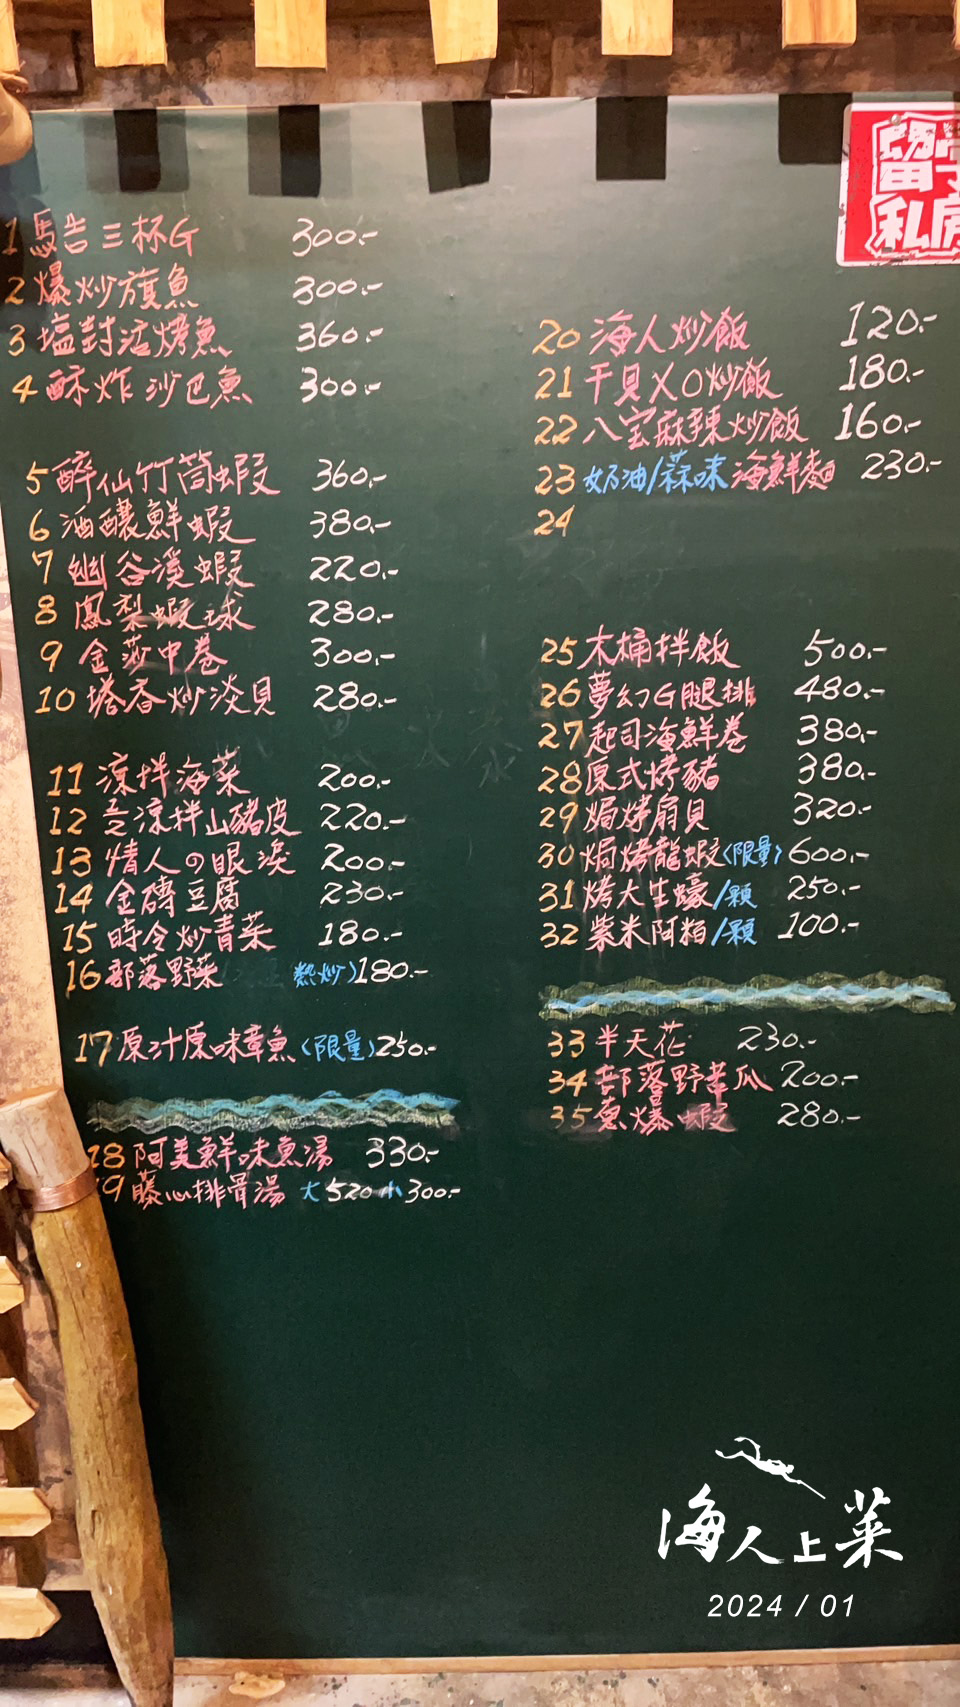 1 馬告三杯G 300.-
2 爆炒旗魚 300.-
3 塩封活烤魚 360.-
4 酥炸沙巴魚 300.-
5 醉仙竹筒蝦 360.-
6 酒釀鮮蝦 380.-
7 幽谷溪蝦 220.-
8 鳳梨蝦球 280.-
9 金莎中卷 300.-
10 塔香炒淡貝 280.-
11 涼拌海菜 200.-
12 涼拌山豬皮 220.-
13 情人の眼淚 200.-
14 金磚豆腐 230.-
15 時令炒青菜 180.-
16 部落野菜 熱炒 180.-
17 原汁原味章魚〈限量〉250.-
18 阿美鮮味魚湯 330.-
19 藤心排骨湯 大520 小300.-
留
私房
20 海人炒飯 120.-
21 干貝XO炒飯 180.-
22 八宝麻辣炒飯 160.-
23 奶油/蒜味海鮮麵 230.-
24
25 木桶拌飯 500.-
26 夢幻G腿排 480.-
27 起司海鮮卷 380.-
28 原式烤豬 380.-
29 焗烤扇貝 320.-
30 焗烤龍蝦〈限量〉600.-
31 烤大生蠔/顆 250.-
32 紫米阿粨/顆 100.-
33 半天花 230.-
34 部落野苦瓜 200.-
35 蔥爆蝦 280.-
海人上菜
2024 / 01